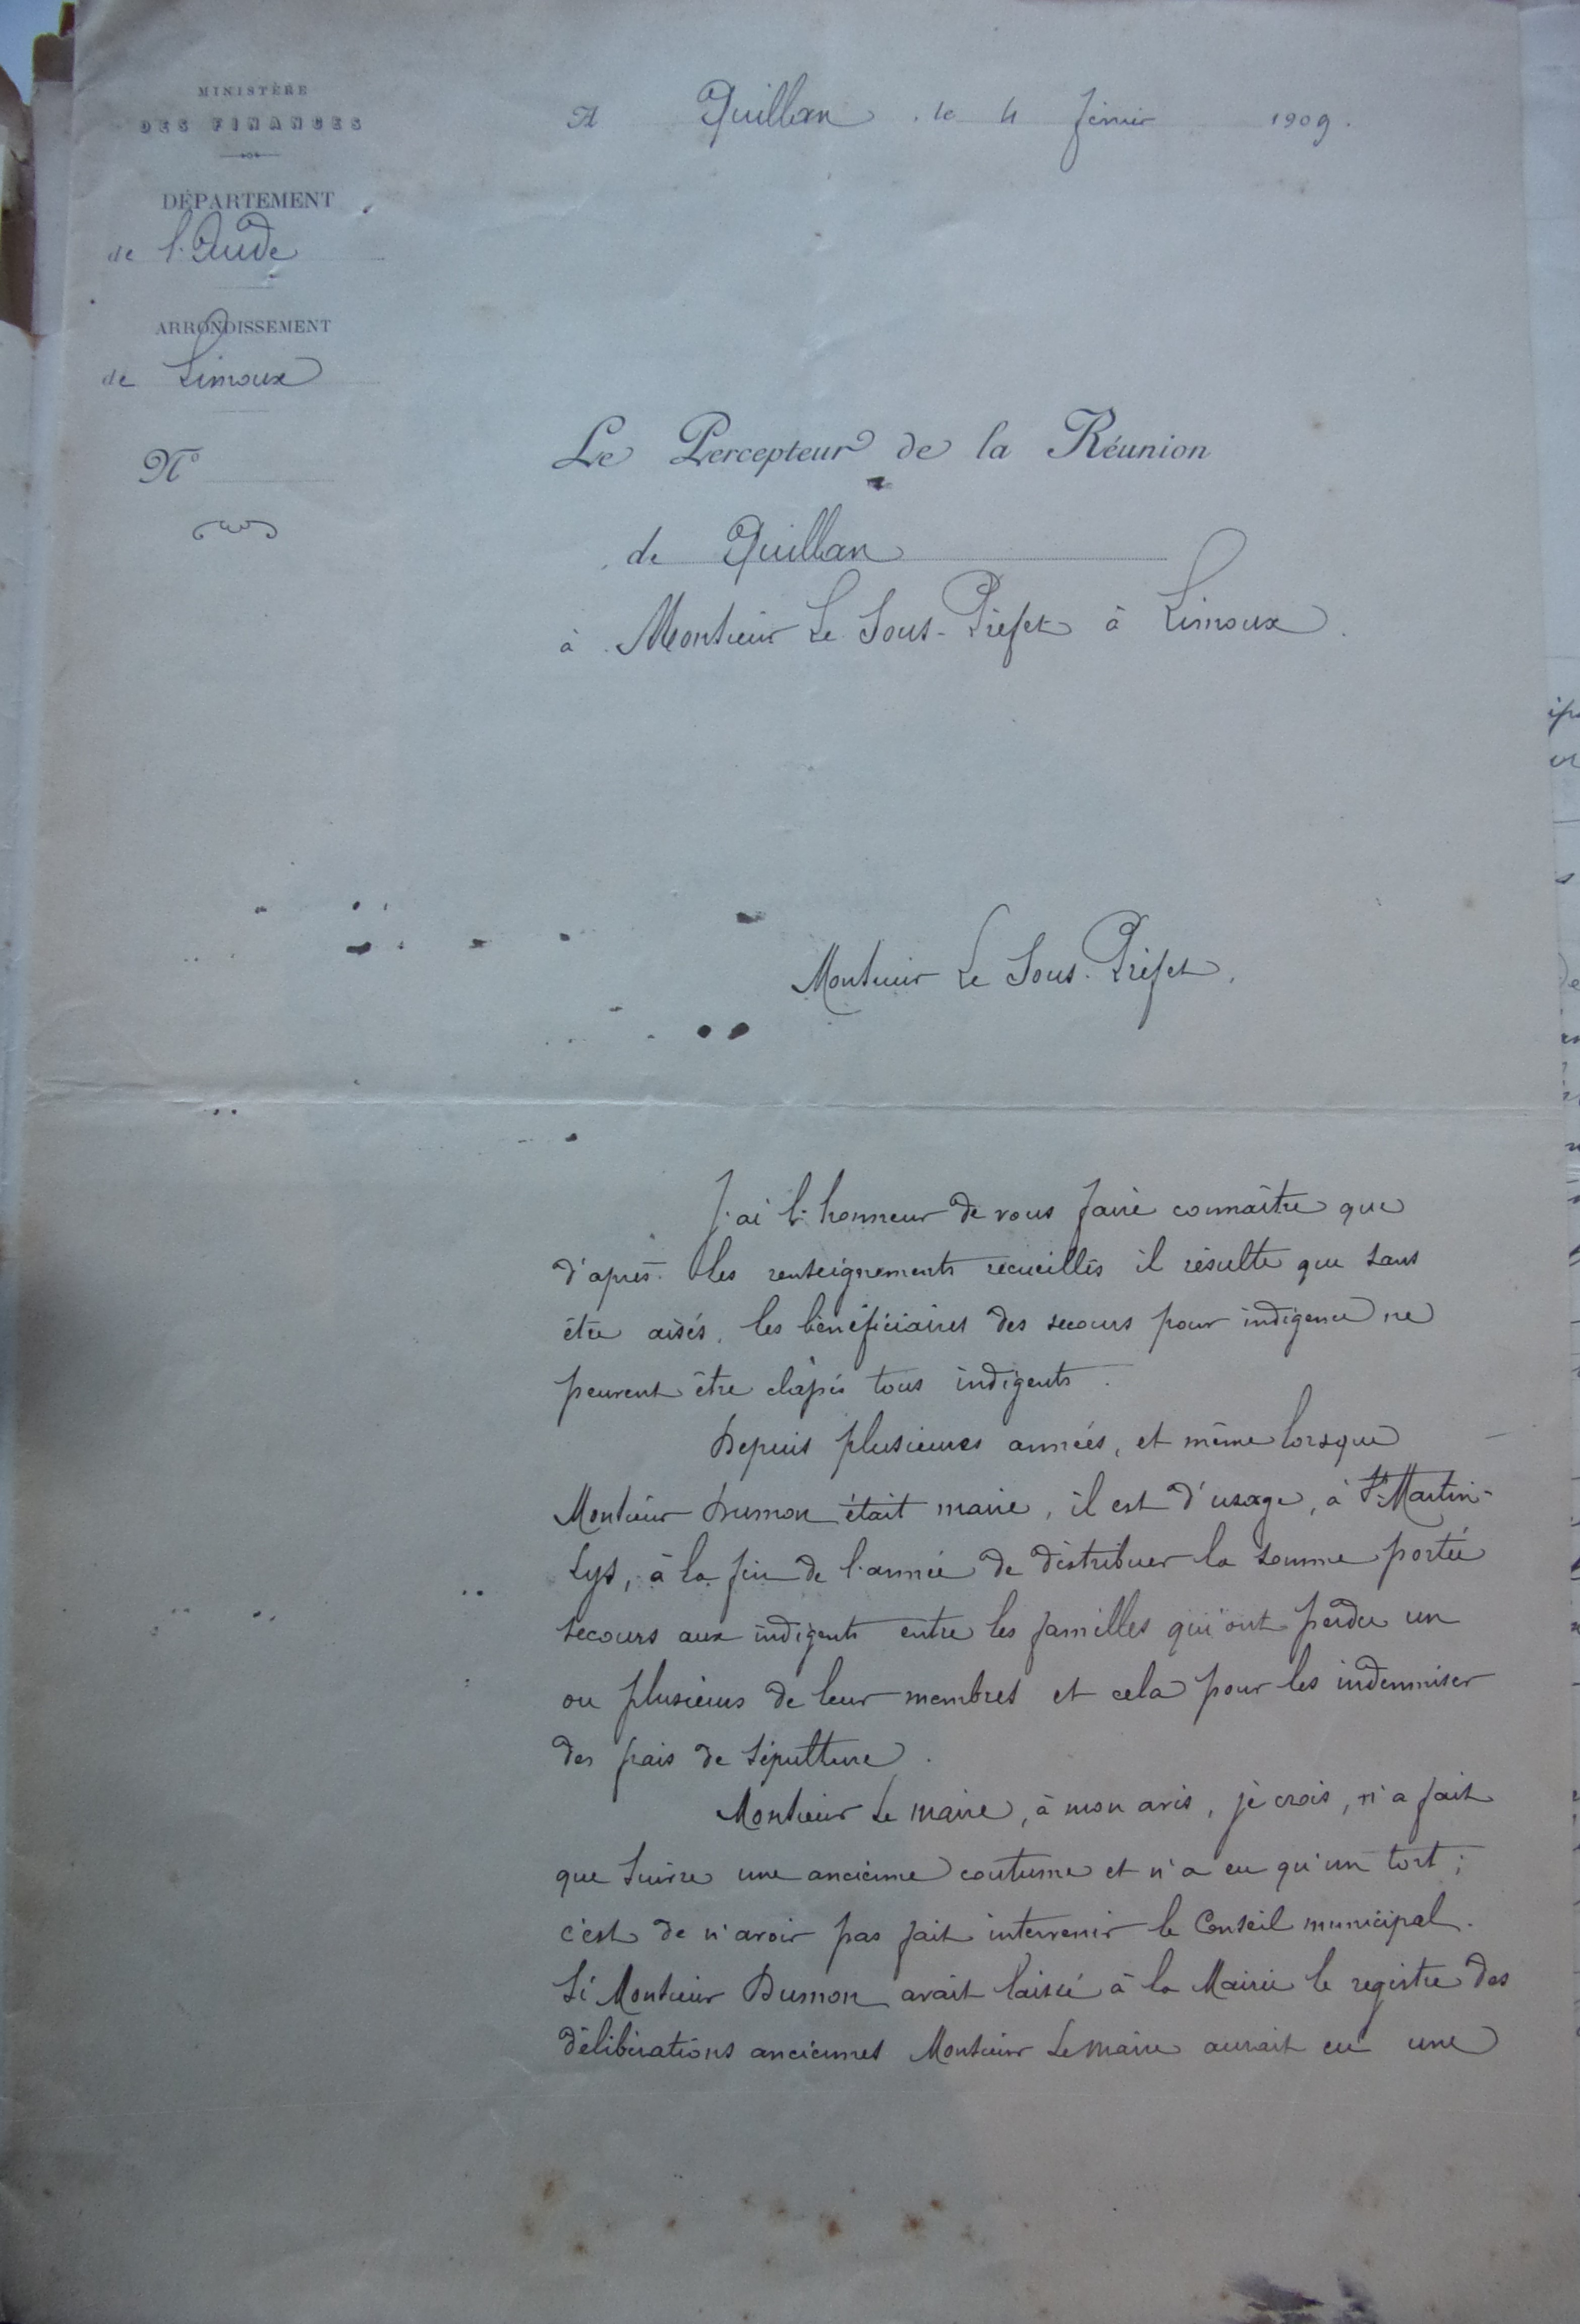 MINISTÈRE
DES FINANCES
DÉPARTEMENT
de l'Aude
ARRONDISSEMENT
de Limoux
N°
A Quillan, le 4 février 1909.
Le Percepteur de la Réunion
de Quillan
à Monsieur Le Sous-Préfet à Limoux.
Monsieur Le Sous-Préfet,
J'ai l'honneur de vous faire connaître que
d'après les renseignements recueillis il résulte que sans
être aisés, les bénéficiaires des secours pour indigence ne
peuvent être classés tous indigents.
Depuis plusieurs années, et même lorsque
Monsieur Dumon était maire, il est d'usage, à St-Martin-
Lys, à la fin de l'année de distribuer la somme portée
secours aux indigents entre les familles qui ont perdu un
ou plusieurs de leur membres et cela pour les indemniser
des frais de sépulture.
Monsieur Le Maire, à mon avis, je crois, n'a fait
que suivre une ancienne coutume et n'a eu qu'un tort;
c'est de n'avoir pas fait intervenir le Conseil municipal.
Si Monsieur Dumon avait laissé à la Mairie le registre des
délibérations anciennes Monsieur Le Maire aurait eu une